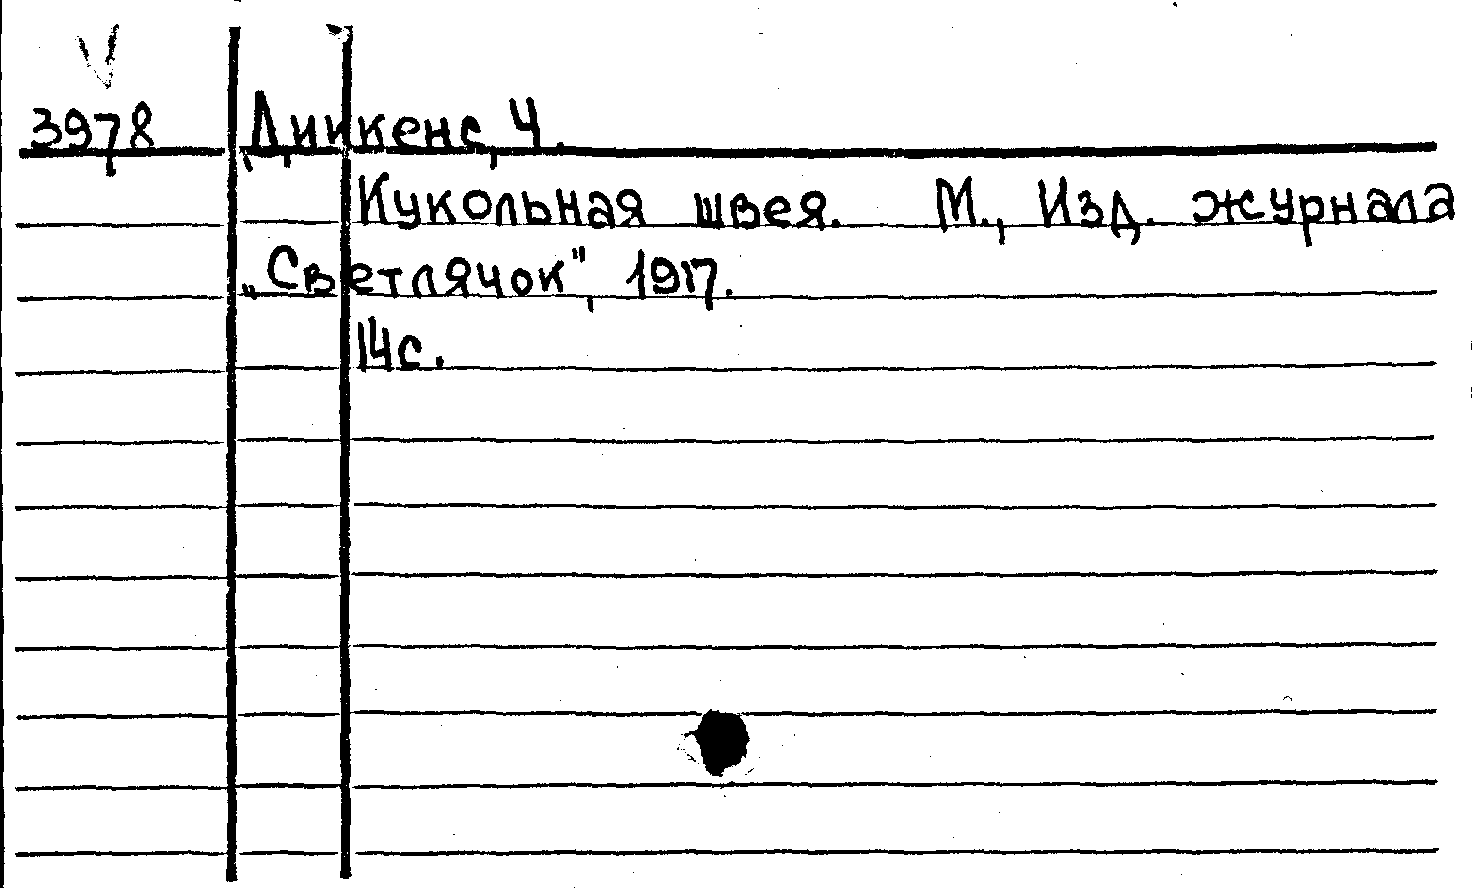 V
3978 Диккенс, Ч.
Кукольная швея. М., Изд. журнала
„Светлячок", 1917.
14с.